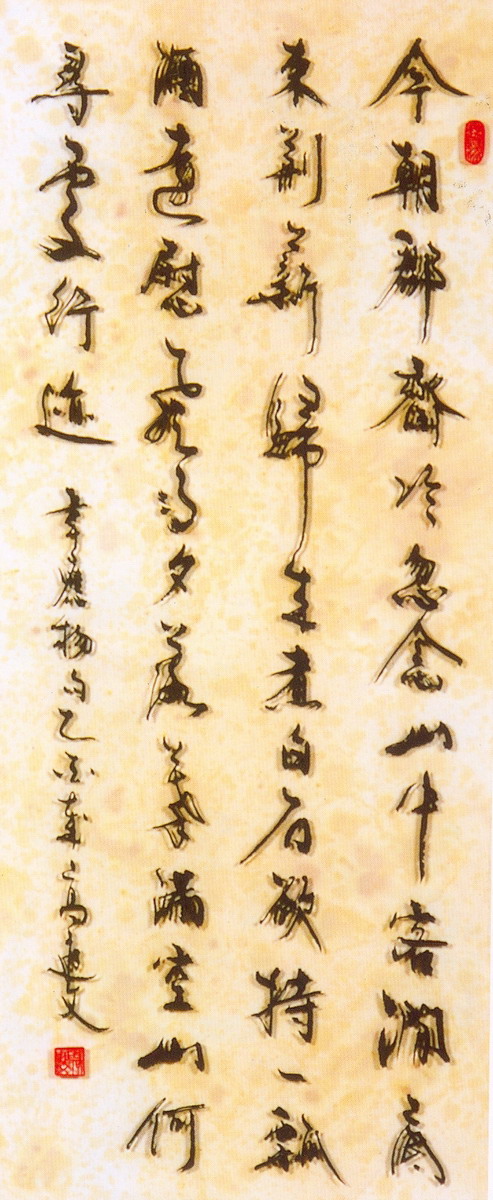 今朝郡齋冷忽念山中客澗底
束荊薪歸來煮白石欲持一瓢
酒遠慰風雨夕落葉滿空山何
尋處行迹
韋應物句乙